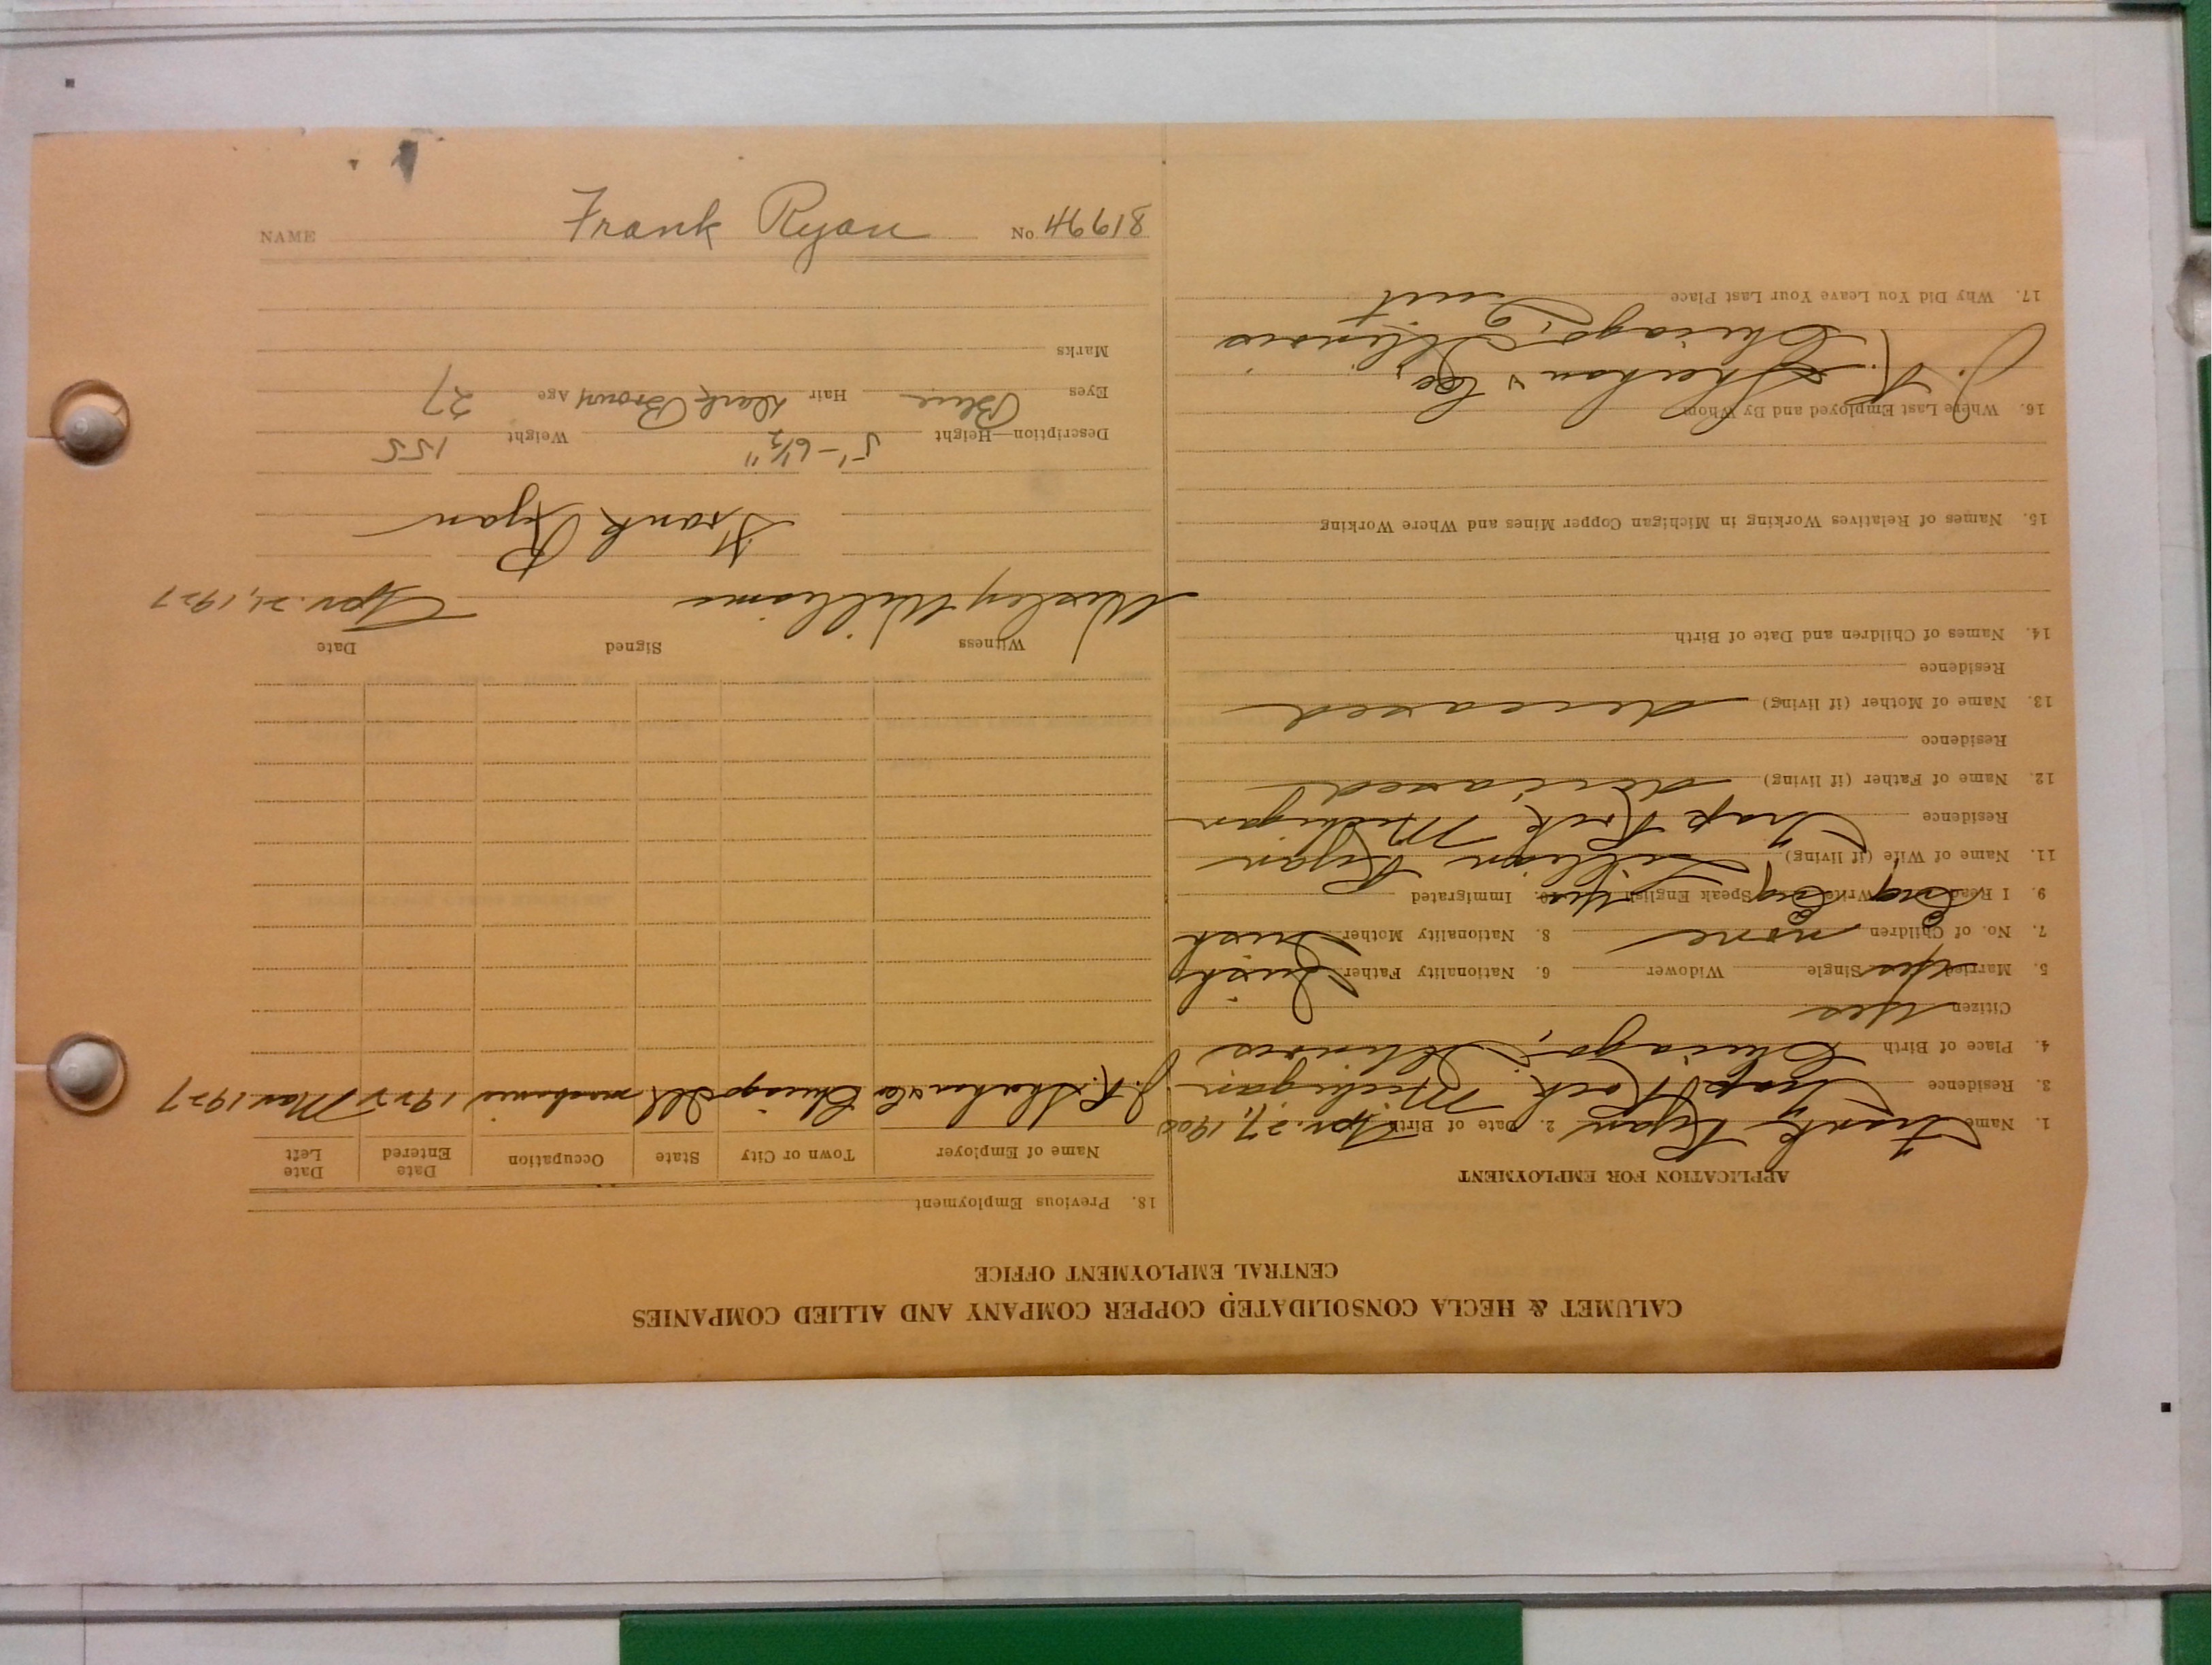 CALUMET & HECLA CONSOLIDATED COPPER COMPANY AND ALLIED COMPANIES
CENTRAL EMPLOYMENT OFFICE
APPLICATION FOR EMPLOYMENT
1. Name Frank Ryan 2. Date of Birth Apr. 27, 1900
3. Residence Trap Rock Michigan
4. Place of Birth Chicago, Illinois
Citizen yes
5. Married yes Single Widower 6. Nationality Father Irish
7. No. of Children none 8. Nationality Mother Irish
9. I Read Eng Write Eng Speak English yes 10. Immigrated
11. Name of Wife (if living) Lillian Ryan
Residence Trap Rock Michigan
12. Name of Father (if living) deceased
Residence
13. Name of Mother (if living) deceased
Residence
14. Names of Children and Date of Birth
15. Names of Relatives Working in Michigan Copper Mines and Where Working
16. Where Last Employed and By Whom
J. R. Sheehan & Co,
Chicago, Illinois
17. Why Did You Leave Your Last Place Quit
18. Previous Employment
Name of Employer Town or City State Occupation Date Entered Date Left
J. R. & Co Chicago Ill Mar 1927
Witness Signed Date
Wesley Williams Apr. 21, 1927
Frank Ryan
Description—Height 5'-6½" Weight 155
Eyes Blue Hair Dark Brown Age 27
Marks
NAME Frank Ryan No 46618